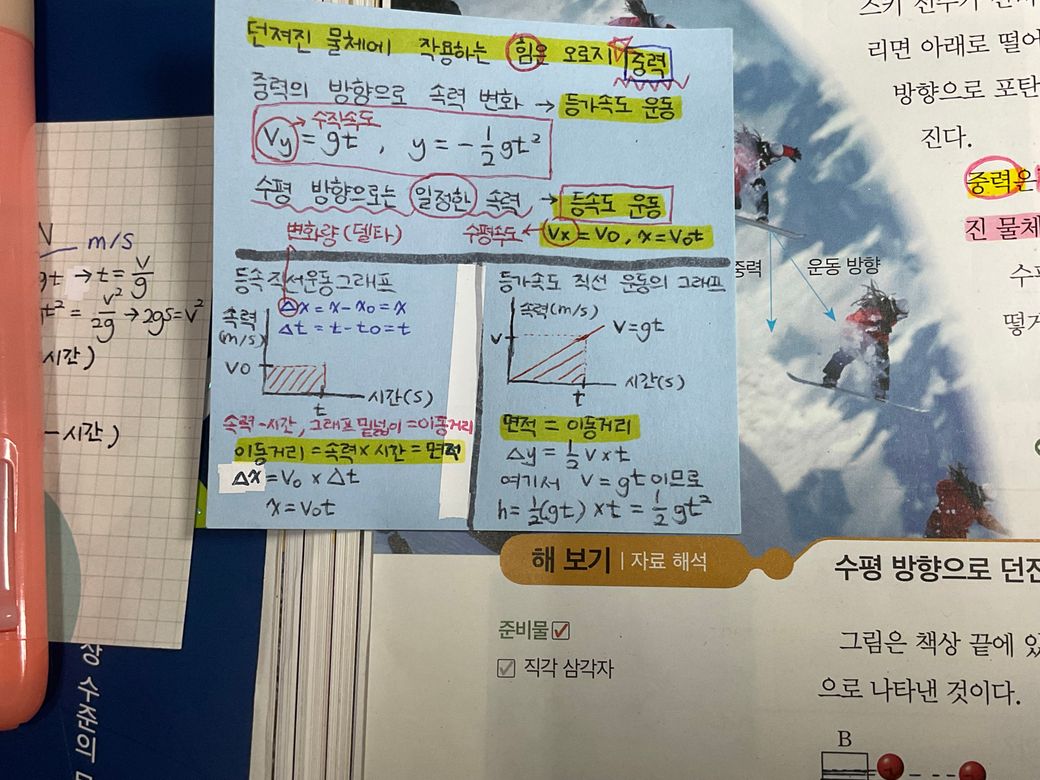 던져진 물체에 작용하는 힘은 오로지 중력
중력의 방향으로 속력 변화 → 등가속도 운동
→수직속도
Vy = gt , y = -1/2gt²
수평 방향으로는 일정한 속력 → 등속도 운동
변화량(델타) 수평속도← Vx = V0, x = V0t
등속 직선운동 그래프
△x = x - x0 = x
△t = t - t0 = t
속력
(m/s)
V0
시간(s)
t
속력-시간, 그래프 밑넓이 = 이동거리
이동거리 = 속력 × 시간 = 면적
△x = V0 × △t
x = V0t
등가속도 직선 운동의 그래프
속력(m/s)
V
V=gt
시간(s)
t
면적 = 이동거리
△y = 1/2 v × t
여기서 v = gt 이므로
h = 1/2(gt) × t = 1/2gt²
V m/s
gt → t = v/g
t² = v²/2g → 2gs = v²
시간)
-시간)
상 수준의
리면 아래로 떨어
방향으로 포탄
진다.
중력은
진 물체
수평
떻게
중력
운동 방향
해 보기 | 자료 해석
수평 방향으로 던진
준비물
직각 삼각자
그림은 책상 끝에 있
으로 나타낸 것이다.
B